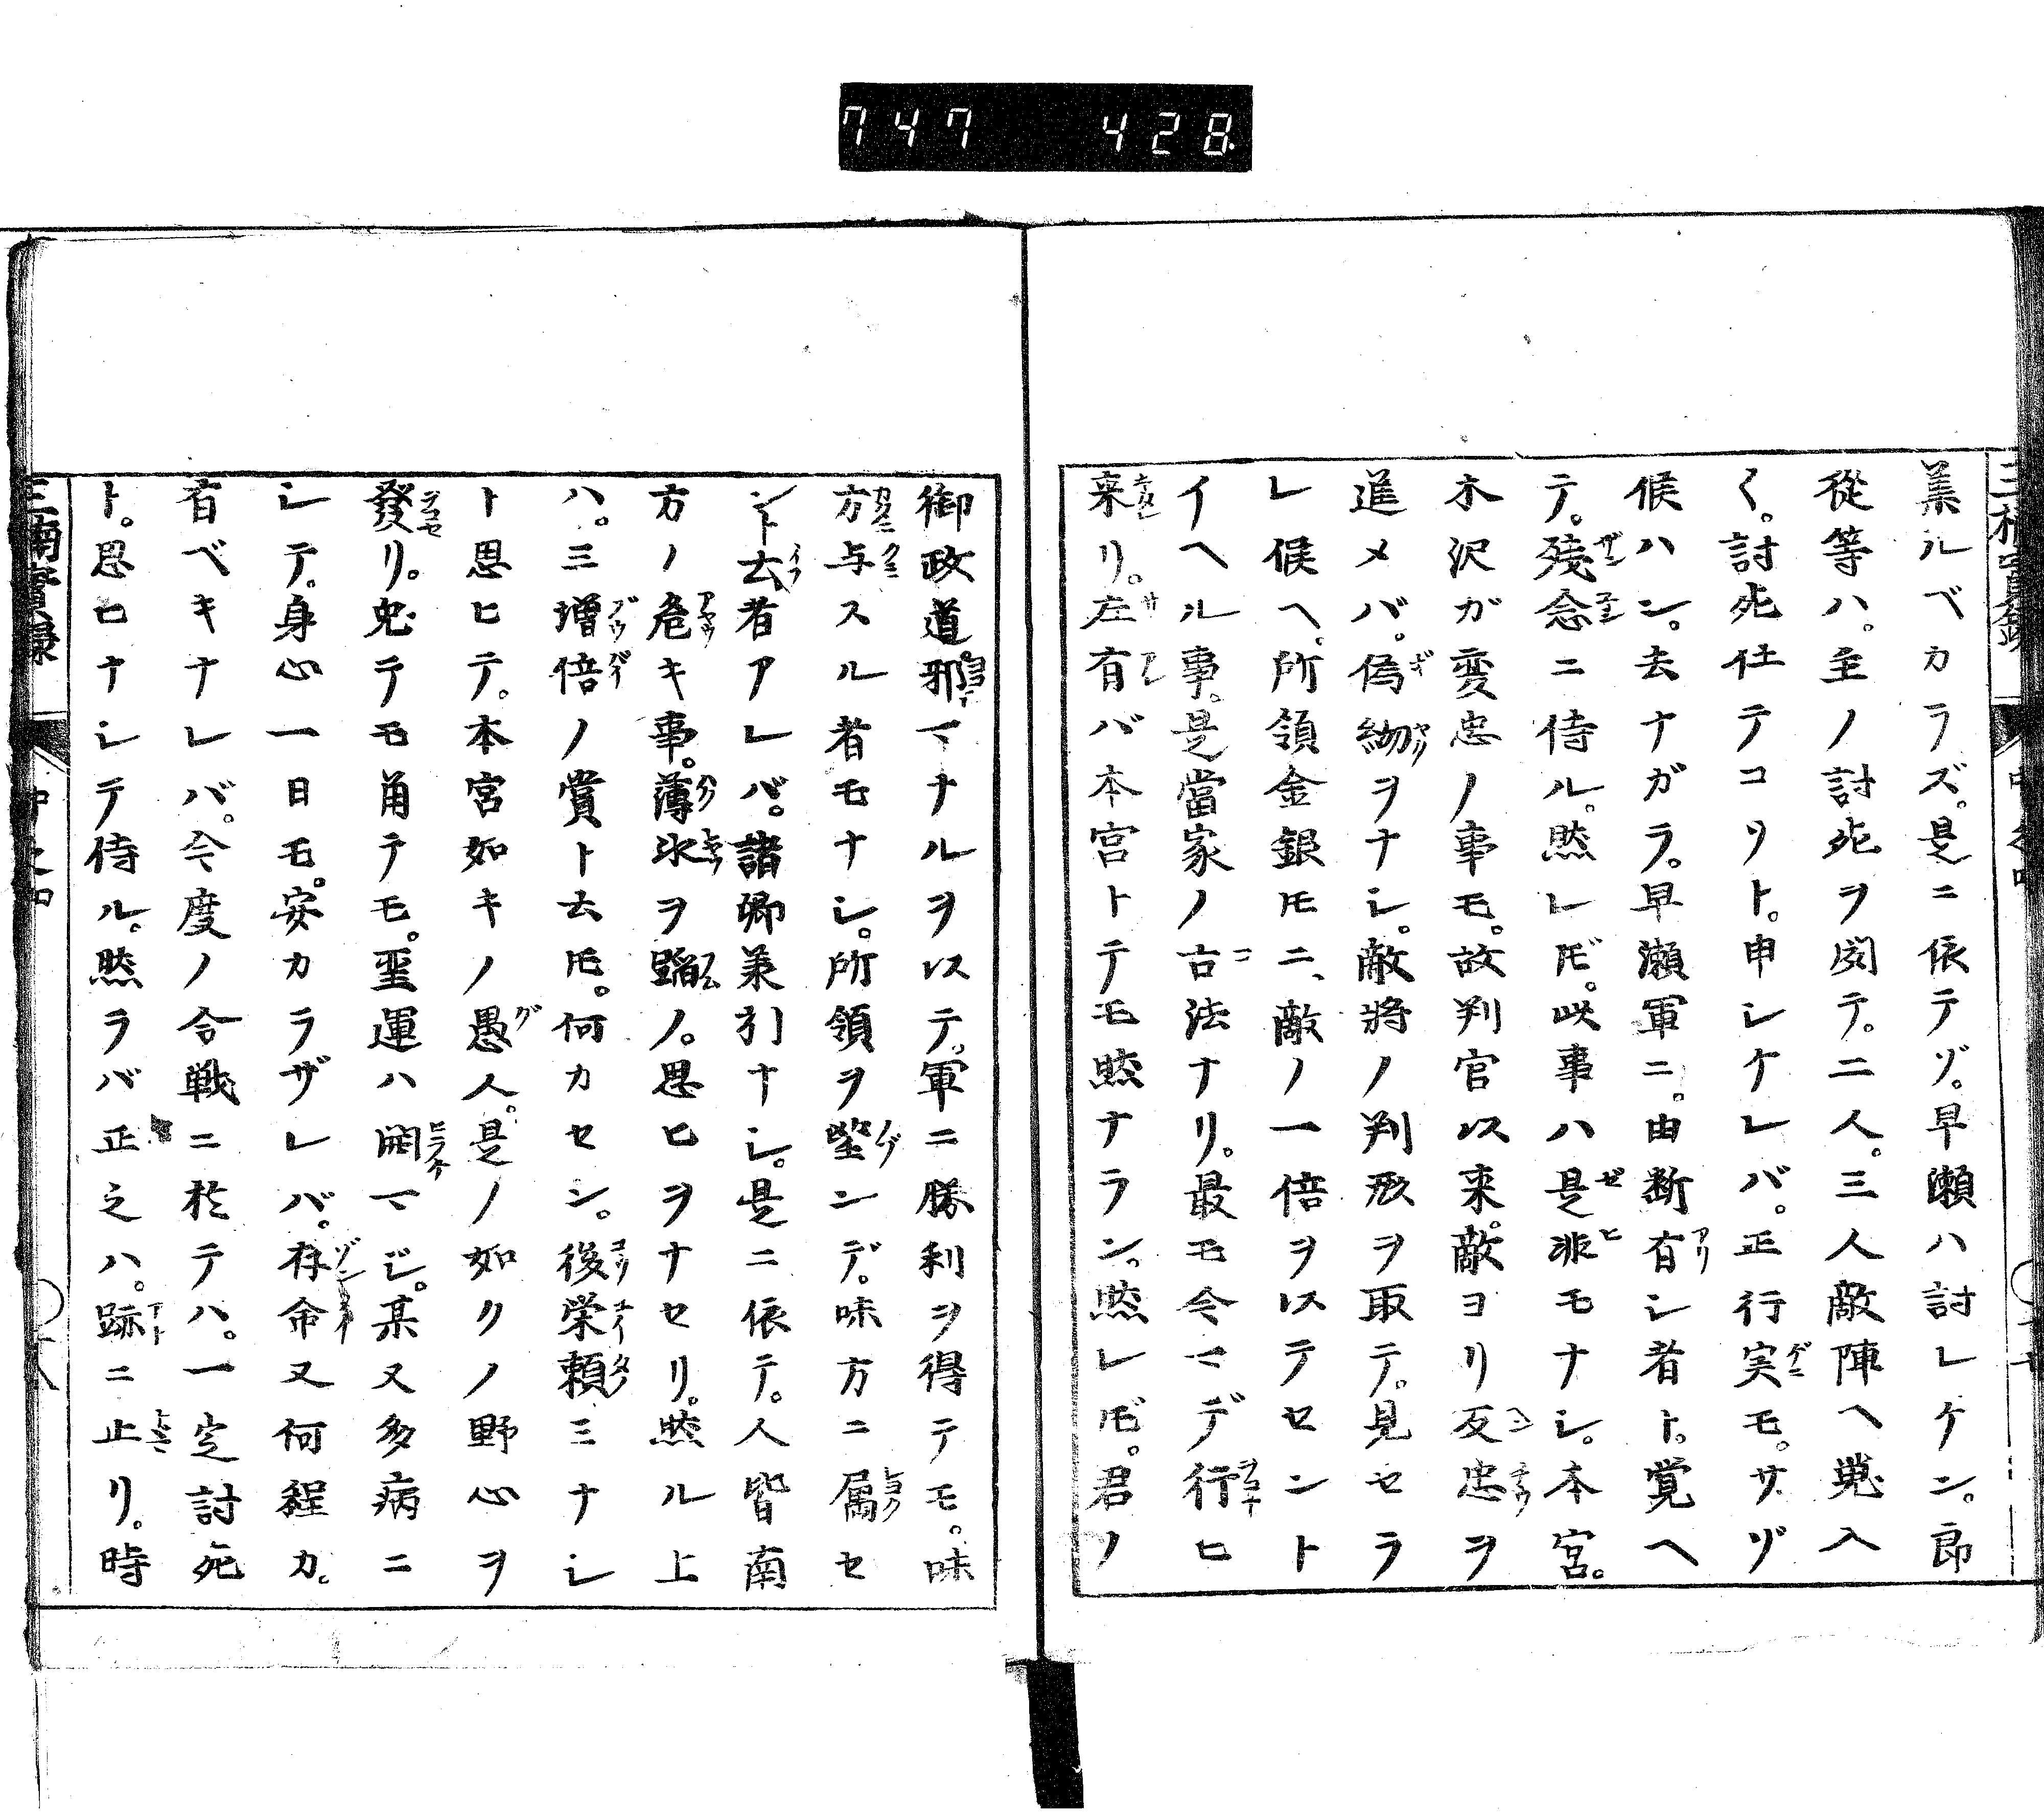 747 428
集ルベカラズ。是ニ依テゾ。早瀬ハ討レケン。郎
從等ハ。主ノ討死ヲ聞テ。二人。三人敵陣ヘ蒐入
〱。討死仕テコソト。申シケレバ。正行実モ。サゾ
候ハン。去ナガラ。早瀬軍ニ。由断有シ者ト。覚ヘ
テ。残念ニ侍ル。然レ𪜈。此事ハ是非モナシ。本宮。
木沢ガ変忠ノ事モ。故判官以来。敵ヨリ反忠ヲ
進メバ。偽約ヲナシ。敵將ノ判形ヲ取テ。見セラ
レ候ヘ。所領金銀𪜈ニ、敵ノ一倍ヲ以テセント
イヘル事。是當家ノ古法ナリ。最モ今マデ行ヒ
来リ。左有バ本宮トテモ然ナラン。然レ𪜈。君ノ
御政道。邪マナルヲ以テ。軍ニ勝利ヲ得テモ。味
方与スル者モナシ。所領ヲ望ンデ。味方ニ属セ
ント云者アレバ。諸卿兼引ナシ。是ニ依テ。人皆南
方ノ危キ事。薄氷ヲ蹈ノ。思ヒヲナセリ。然ル上
ハ。三増倍ノ賞ト云𪜈。何カセン。後栄頼ミナシ
ト思ヒテ。本宮如キノ愚人。是ノ如クノ野心ヲ
發リ。兎テモ角テモ。聖運ハ開マジ。某又多病ニ
シテ。身心一日モ。安カラザレバ。存命又何程カ。
有ベキナレバ。今度ノ合戦ニ於テハ。一定討死
ト。思ヒナシテ侍ル。然ラバ正之ハ。跡ニ止リ。時